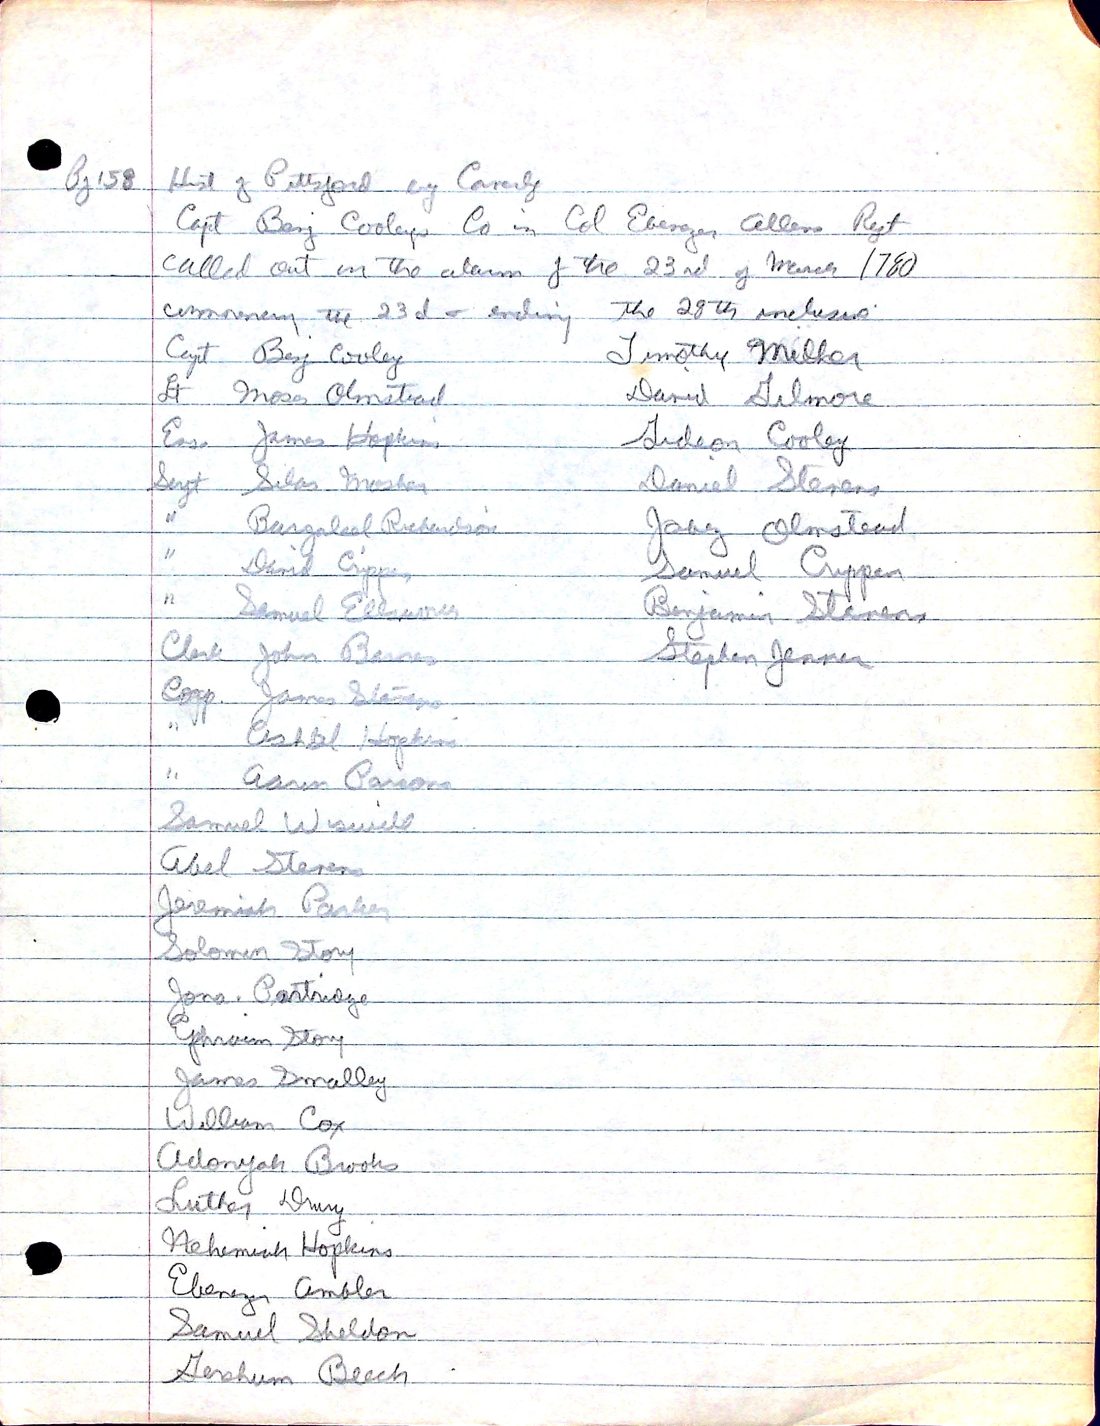 Pg 158 Hist of Pittsford by Caverly
Capt Benj Cooleys Co in Col Ebenezer Allens Regt
called out in the alarm of the 23rd of March 1780
commencing the 23d & ending the 28th inclusive
Capt Benj Cooley
Lt Moses Olmstead
Ens. James Hopkins
Sergt Silas Mosher
" Richardson
" David Crippen
" Samuel Ellsworth
Clerk John Barnes
Corp. James Stevens
" Ashbel Hopkins
" Aaron Parsons
Samuel Wiswell
Abel Stevens
Jeremiah Parker
Solomon Story
Jona. Partridge
Ephraim Story
James Smalley
William Cox
Adonyah Brooks
Luther Drury
Nehemiah Hopkins
Ebenezer Ambler
Samuel Sheldon
Gershum Beech
Timothy
David Gilmore
Gideon Cooley
Daniel Stevens
Jabez Olmstead
Samuel Crippen
Benjamin Stevens
Stephen Jenner